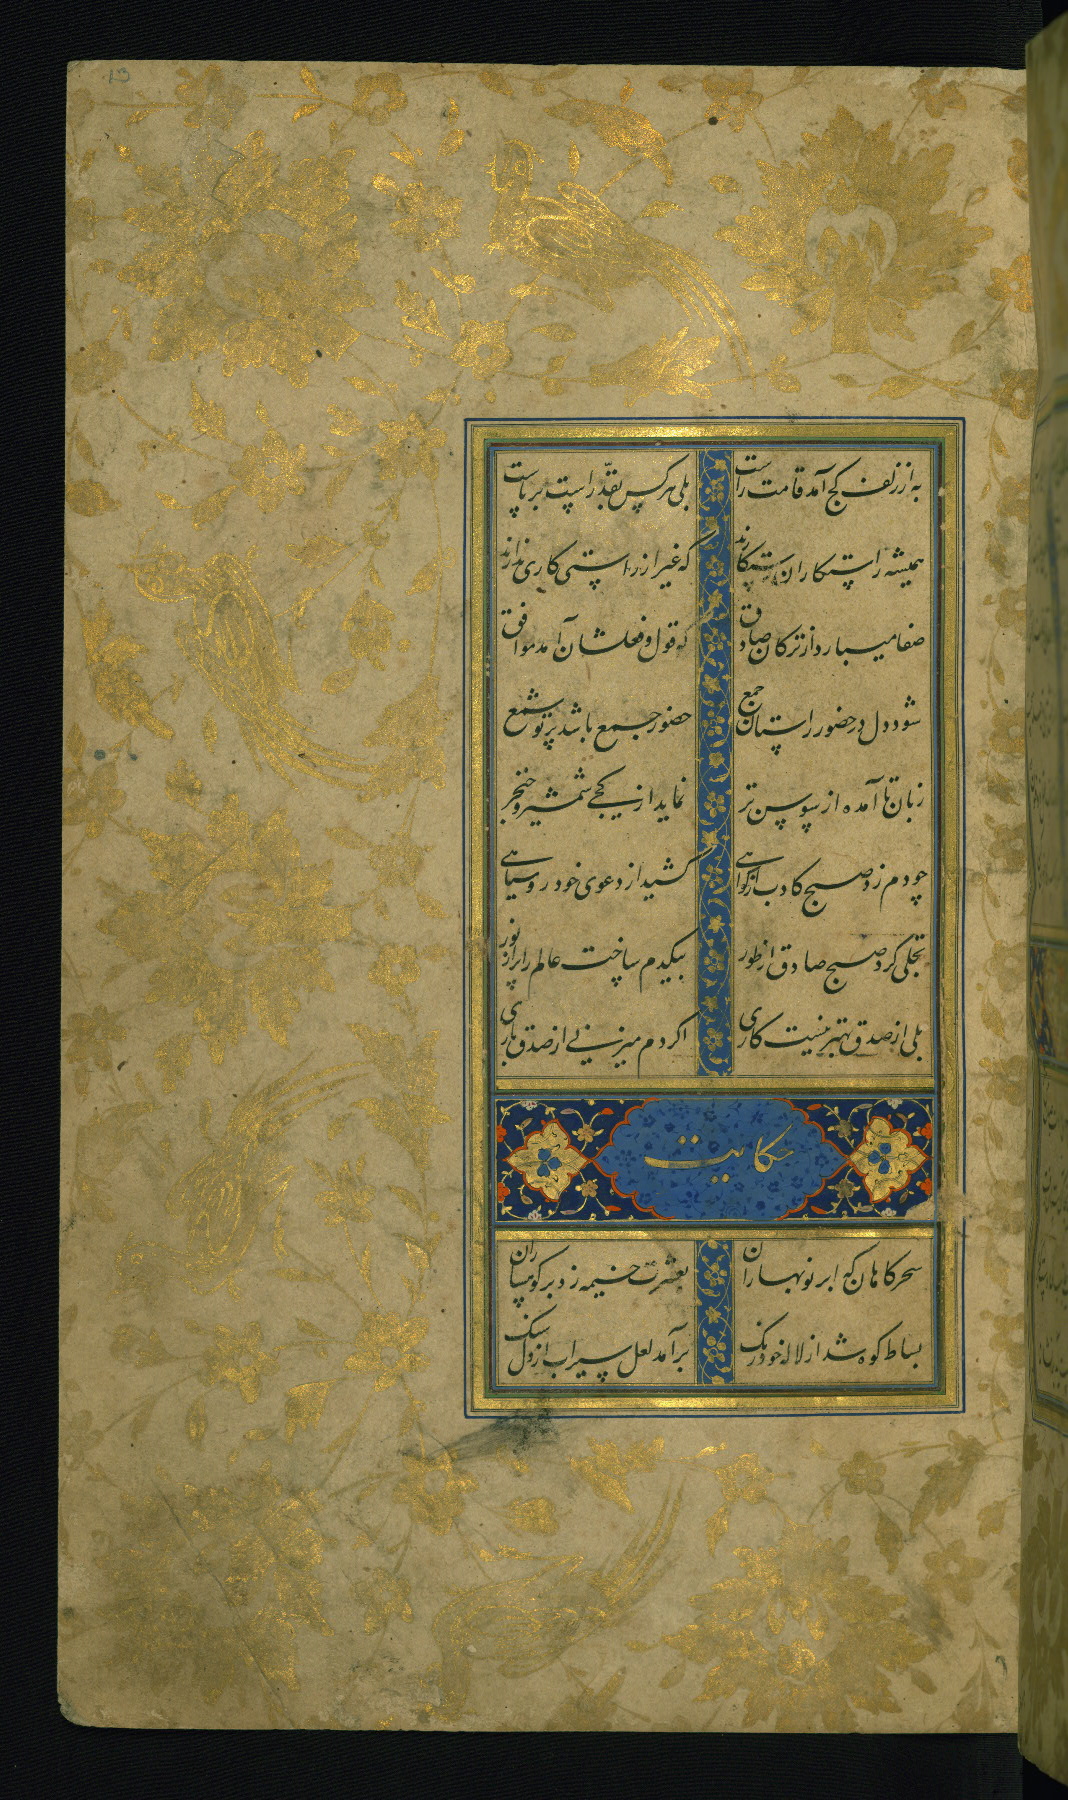 13
به از زلف کج آمد قامت راست بلی هر کس بقدّ راست برپاست
همیشه راستکاران رستکارند که غیر از راستی کاری ندارند
صفا میبارد از ترکان صادق که قول و فعلشان آمد موافق
شود دل در حضور راستان جمع حضور جمع باشد پرتو شمع
زبان تا آمده از سوسن تر نماید از کجی شمشیر و خنجر
چو دم زد صبح کاذب از کواهی کشید از دعوی خود روسیاهی
تجلی کرد صبح صادق از طور بیکدم ساخت عالم را پر از نور
بلی از صدق بهتر نیست کاری اکر دم میزنی از صدق باری
حکایت
سحرکاهان که ابر نوبهاران بعشرت خیمه زد بر کوهساران
بساط کوه شد از لاله خودرنک برآمد لعل سیراب از دل سنک